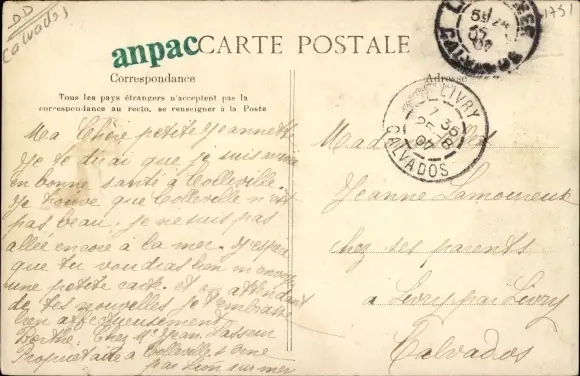 DD
Calvados
anpac
CARTE POSTALE
1751
Correspondance
Adresse
Tous les pays étrangers n'acceptent pas la
correspondance au recto, se renseigner à la Poste
LIVRY
CALVADOS
Ma Chère petite Jeannette
Je te dirai que je suis arrivée
en bonne santé à Colleville.
Je trouve que Colleville n'est
pas beau. je ne suis pas
allée encore à la mer. J'espère
que tu voudras bien m'envoyer
une petite carte. et en attendant
de tes nouvelles je t'embrasse
bien affectueusement
Berthe. Chez Mr Jean Vasseur
Propriétaire à Colleville s Orne
pas Lion sur mer
Mademoiselle
Jeanne Lamoureux
chez ses parents
à Livry par Livry
Calvados